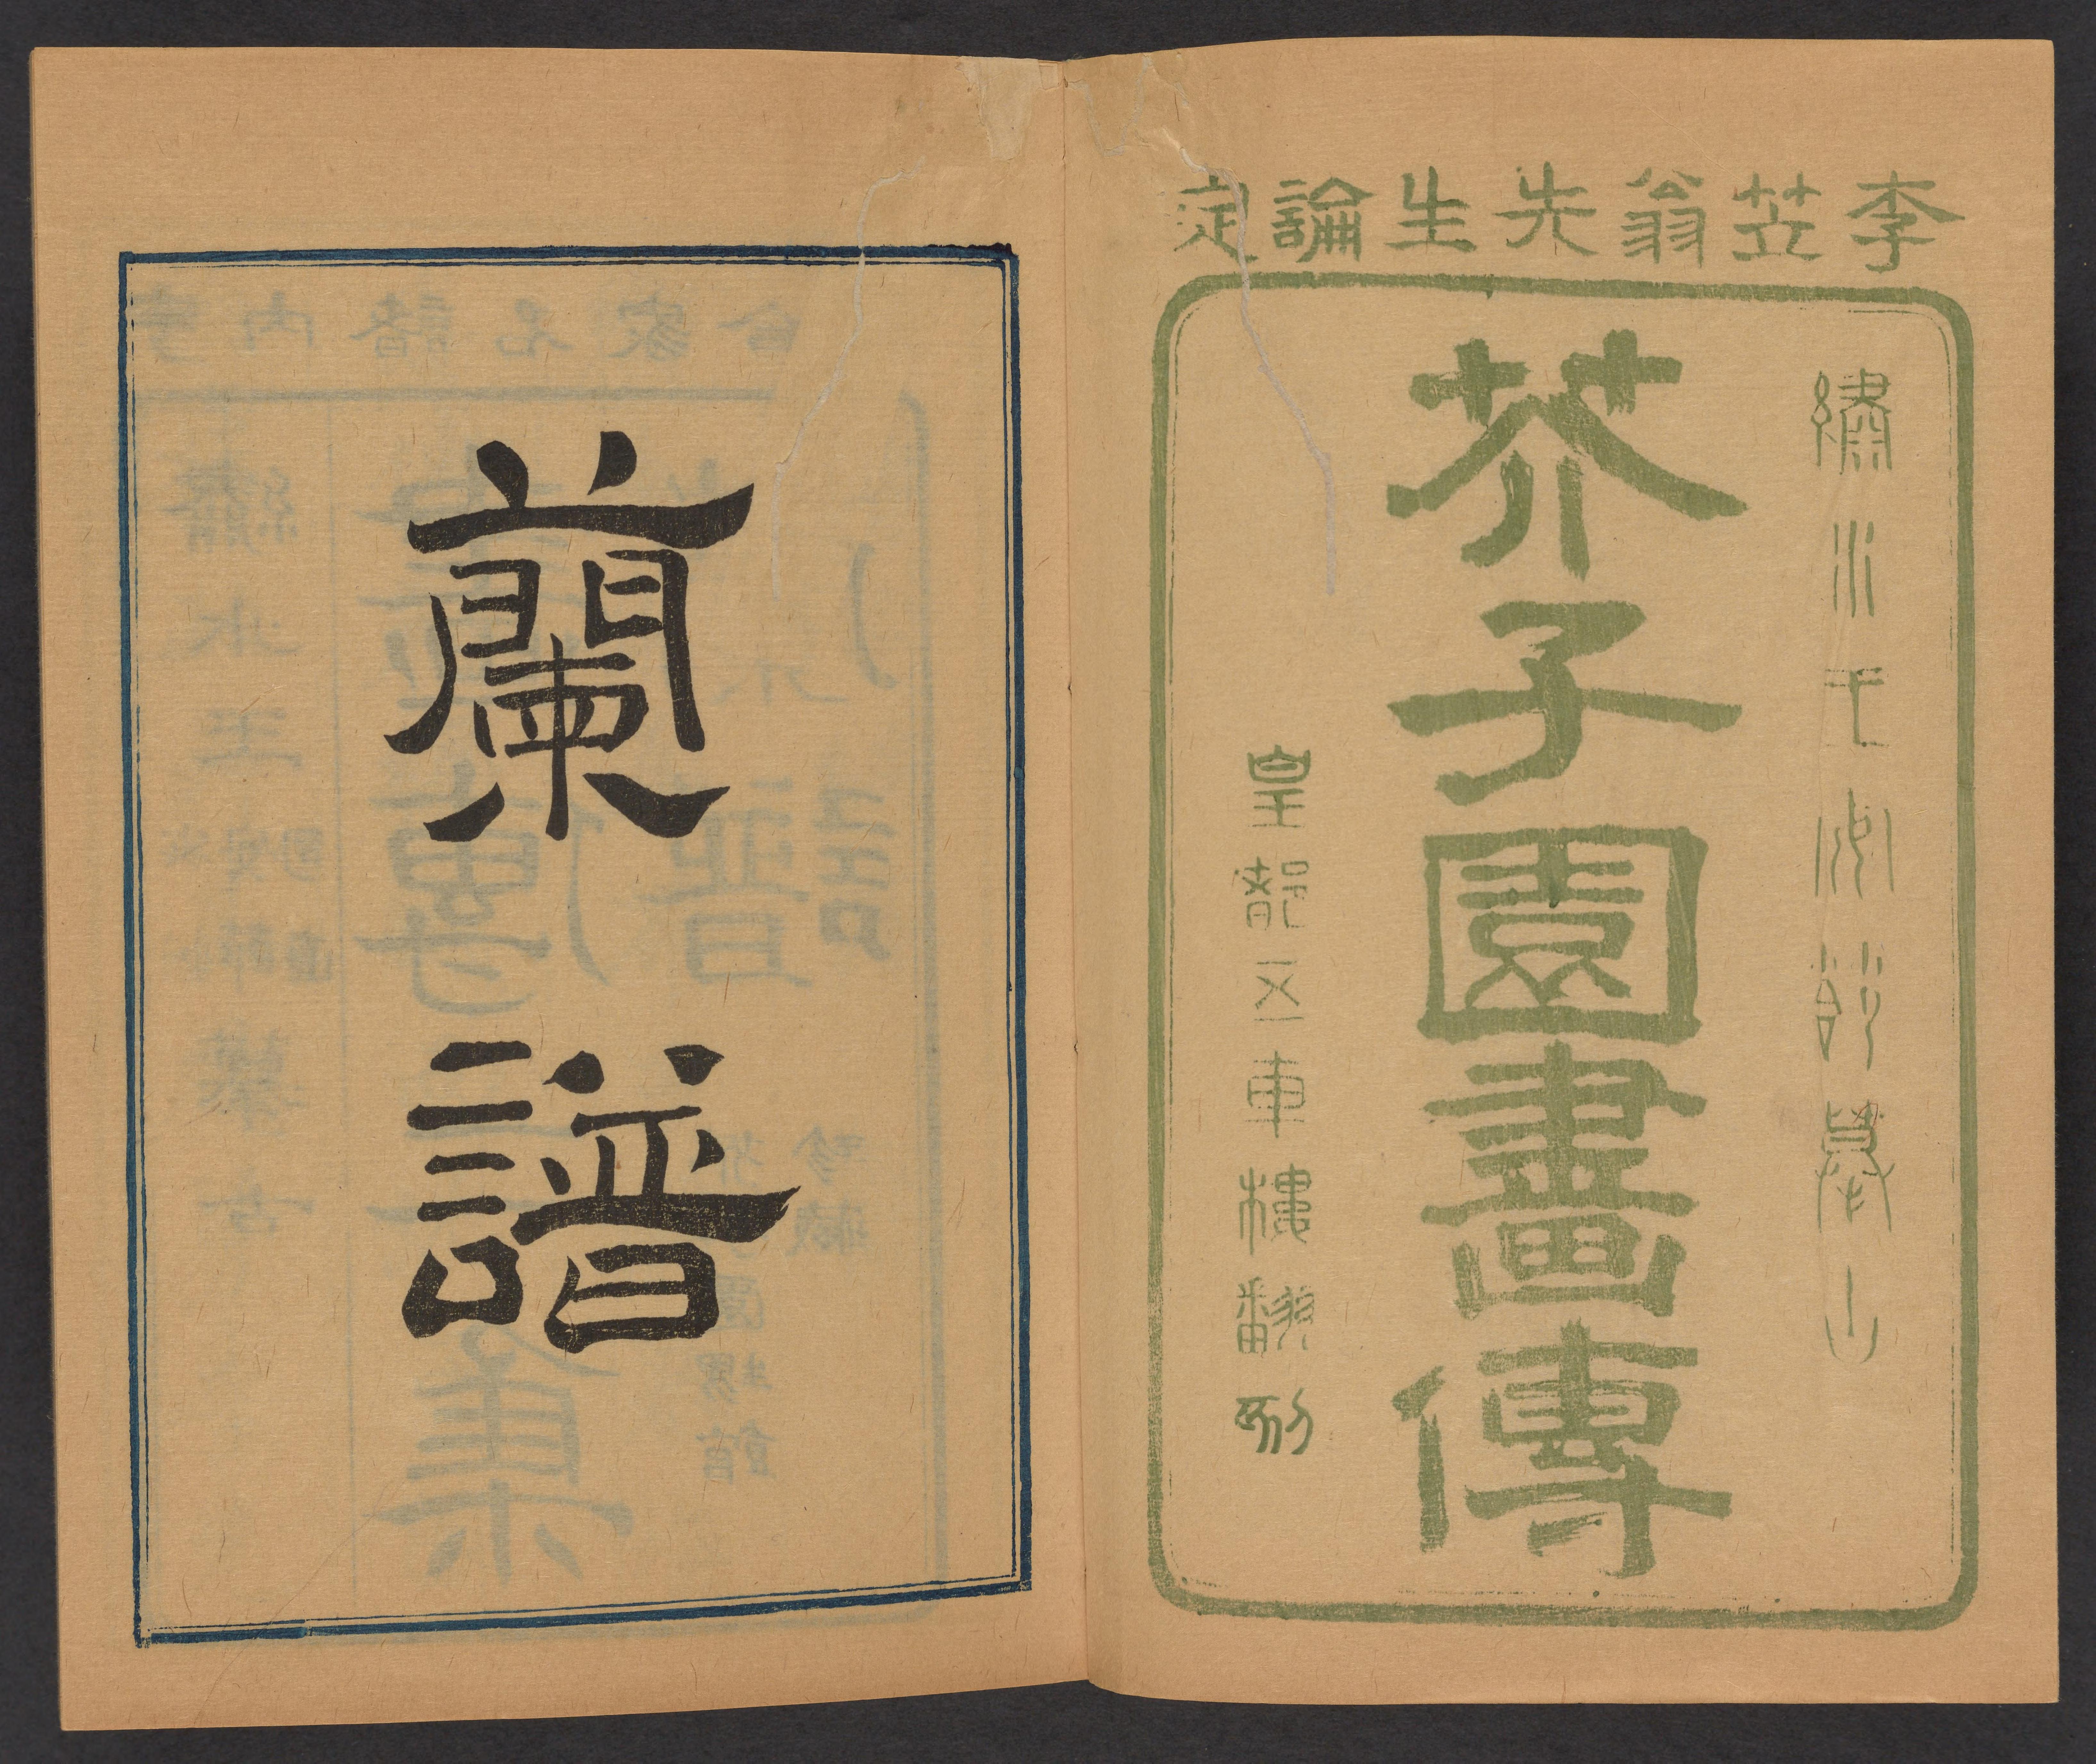 李笠翁先生論定
繡水王安節摹山
芥子園畫傳
皇都五車樓翻刻
蘭譜